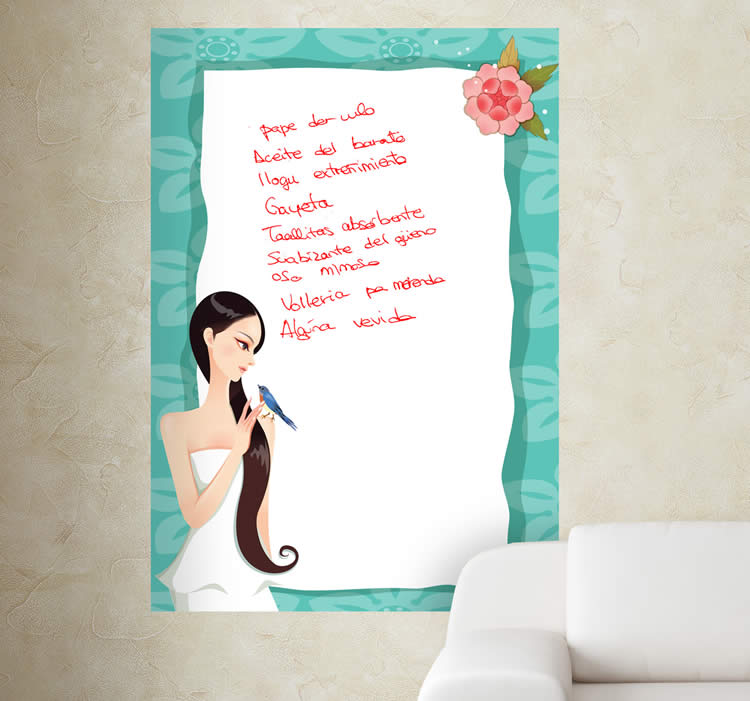 pape der culo
Aceite del barato
Ilogu extreñimiento
Gayeta
Toallitas absorbente
Suabizante del güeno
oso mimoso
Volleria pa merenda
Algúna vevida